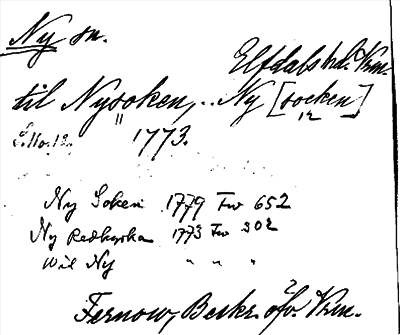 Ny sn.
Elfdals hd. Vrm.
til Nysoken, .. Ny [socken]
1773.
Ny Soken 1779 Fw 652
Ny Redkyrka 1773 Fw 302
Wil Ny " " "
Fernow, Beskr. öfv. Vrm.